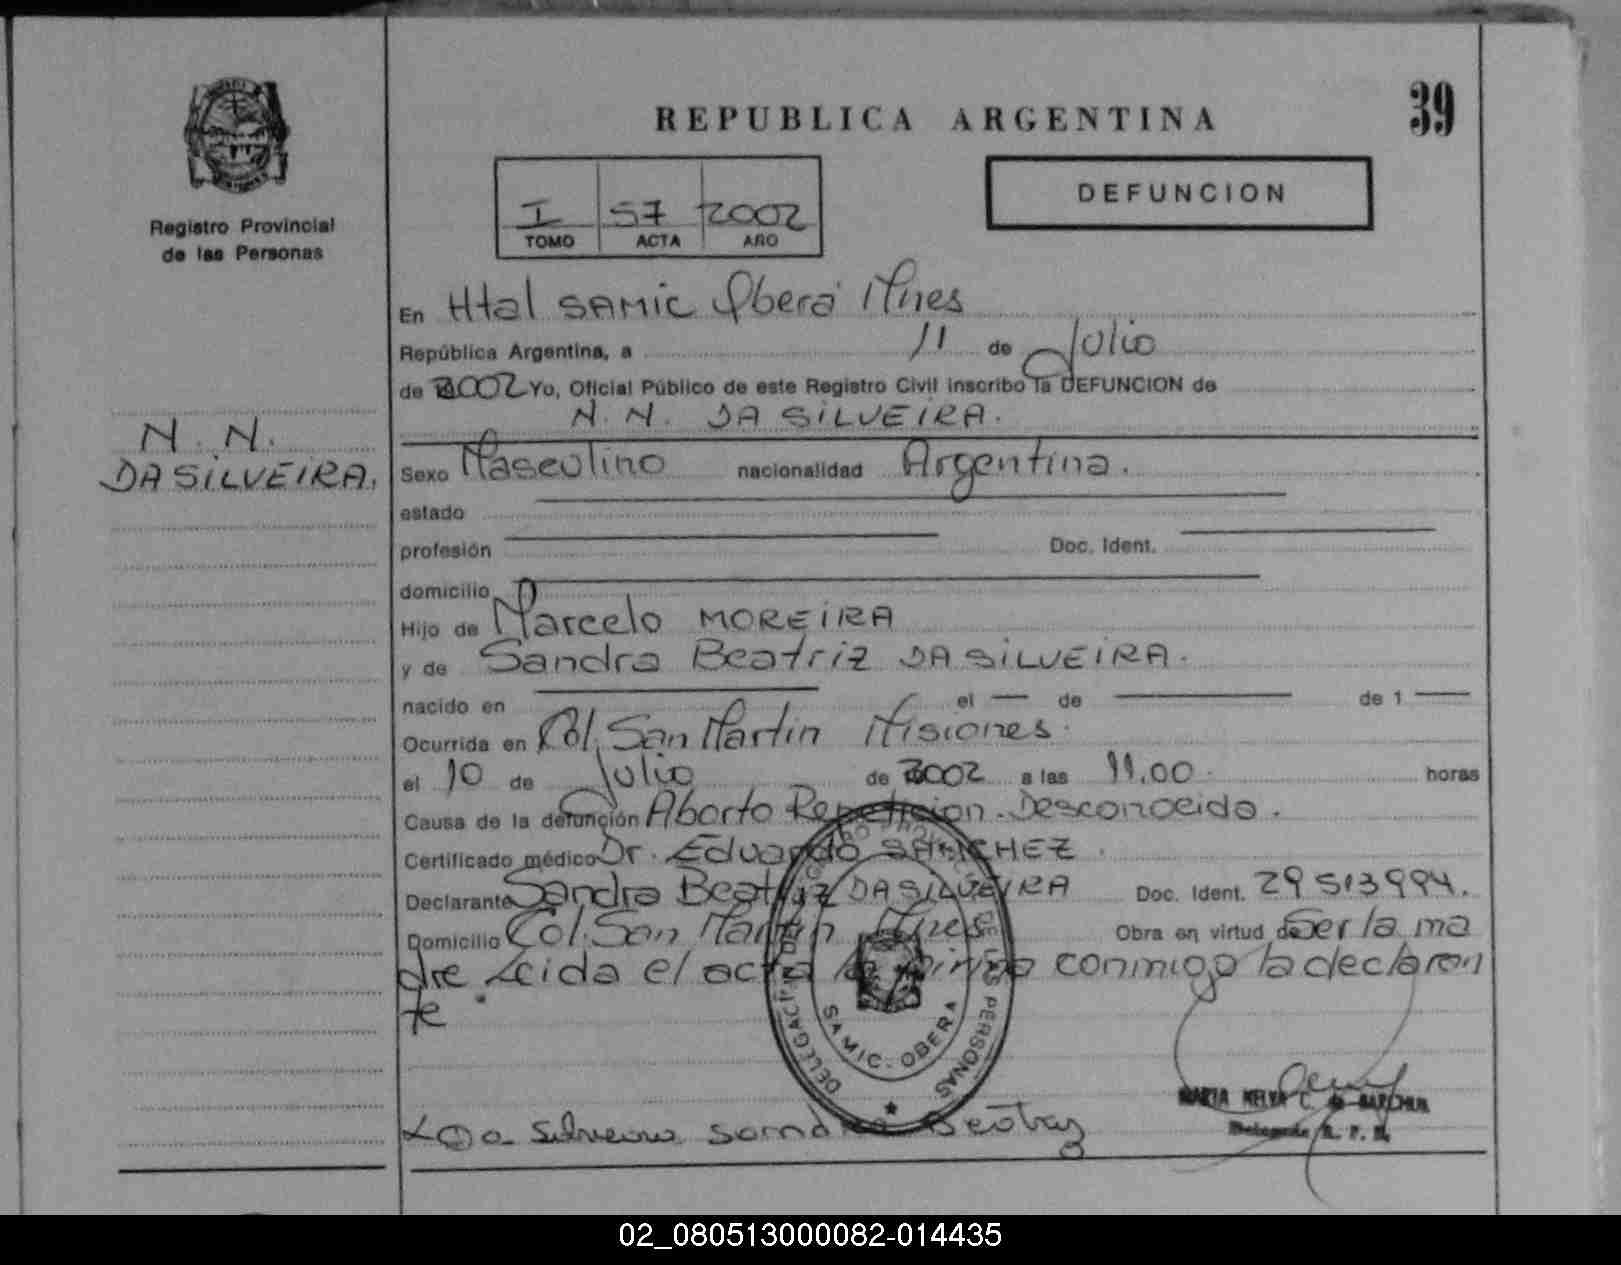 REPUBLICA ARGENTINA
39
Registro Provincial
de las Personas
I 57 2002
TOMO ACTA AÑO
DEFUNCION
En Htal SAMIC Oberá Mnes
República Argentina, a 11 de Julio
de 2002 Yo, Oficial Público de este Registro Civil inscribo la DEFUNCION de
N. N. DA SILVEIRA.
N. N.
DA SILVEIRA.
Sexo Masculino nacionalidad Argentina.
estado
profesión Doc. Ident.
domicilio
Hijo de Marcelo MOREIRA
y de Sandra Beatriz DA SILVEIRA.
nacido en el — de — de 1 —
Ocurrida en Col. San Martin Misiones.
el 10 de Julio de 2002 a las 11,00. horas
Causa de la defunción Aborto Repeticion. Desconocida.
Certificado médico Dr. Eduardo SANCHEZ.
Declarante Sandra Beatriz DA SILVEIRA Doc. Ident. 29 513994.
Domicilio Col. San Martin Mnes Obra en virtud de Ser la ma
dre Leida el acta la firma conmigo la declaran
te
DELEGACION DEL REGISTRO PROVINCIAL DE LAS PERSONAS
SAMIC. OBERA
Da Silveira Sandra Beatriz
MARTA NELVA C. de
Delegada R. P. P.
02_080513000082-014435